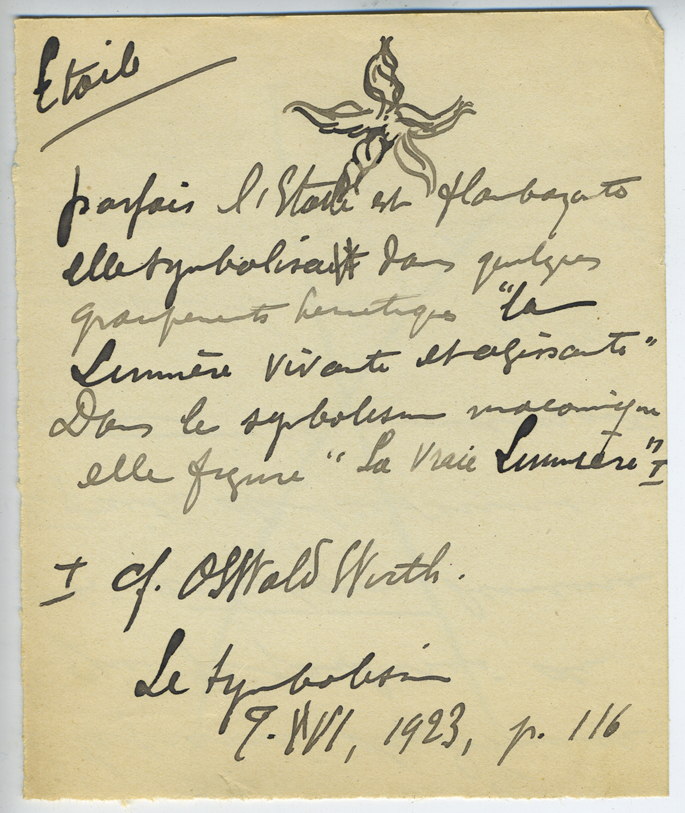 Etoile
parfois l'Etoile est flamboyante
elle symbolise dans quelques
groupements hermetiques "la
Lumière vivante et agissante"
Dans le symbolisme maçonnique
elle figure "La vraie Lumière" I
I cf. OSWald Wirth.
Le symbolisme
T. VI, 1923, p. 116